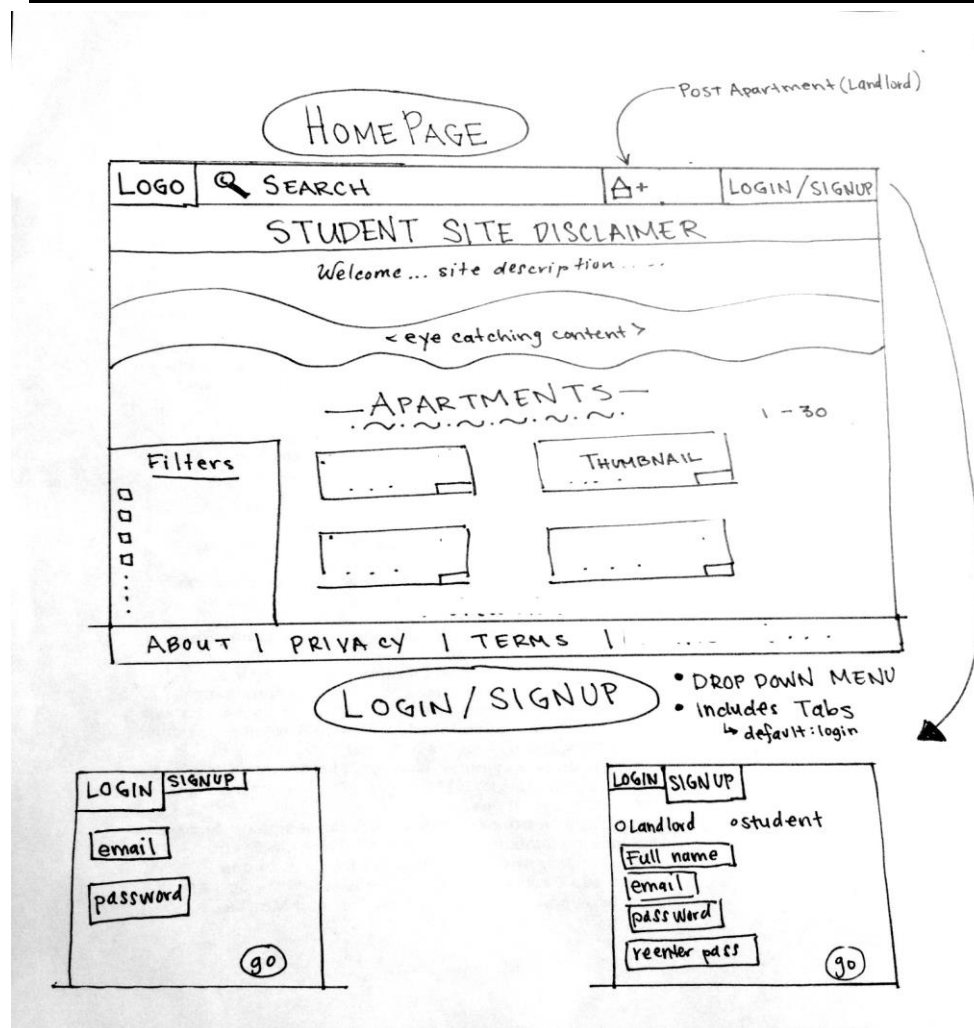 Post Apartment (Landlord)
HOMEPAGE
LOGO
SEARCH
+
LOGIN/SIGNUP
STUDENT SITE DISCLAIMER
Welcome... site description.....
< eye catching content >
— APARTMENTS —
1 - 30
Filters
THUMBNAIL
ABOUT | PRIVACY | TERMS |
LOGIN/SIGNUP
• DROP DOWN MENU
• includes Tabs
↳ default: login
LOGIN SIGNUP
email
password
go
LOGIN SIGNUP
Landlord student
Full name
email
password
reenter pass
go